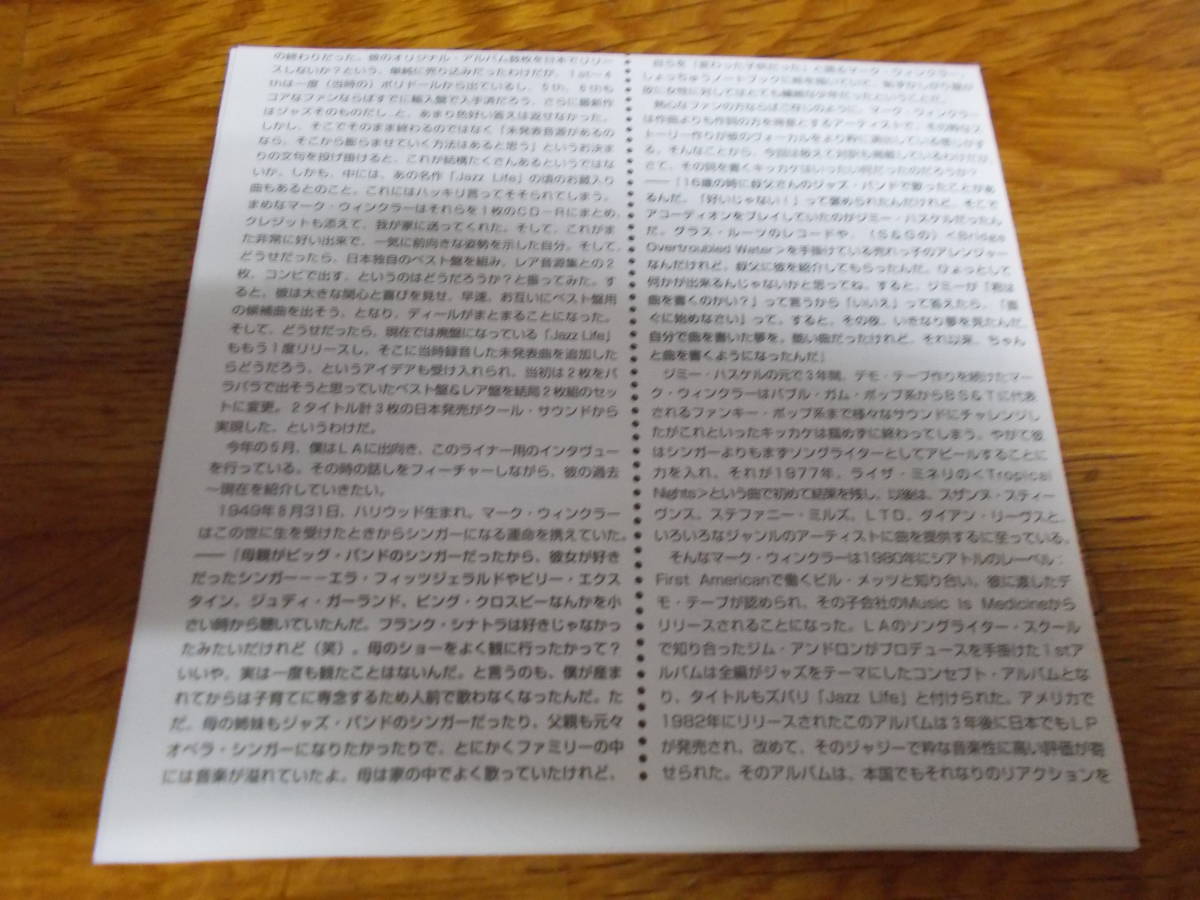 の終わりだった。彼のオリジナル・アルバム数枚を日本でリリー
スしないか？という、単純に売り込みだったわけだが、1st〜4
thは一度（当時の）ポリドールから出ているし、5th、6thも
コアなファンならばすでに輸入盤で入手済だろう、さらに最新作
はジャズそのものだし、と、あまり色好い答えは返せなかった。
しかし、そこでそのまま終わるのではなく「未発表音源があるの
なら、そこから膨らませていく方法はあると思う」というお決ま
りの文句を投げ掛けると、これが結構たくさんあるというではな
いか。しかも、中には、あの名作「Jazz Life」の頃のお蔵入り
曲もあるとのこと。これにはハッキリ言ってそそられてしまう。
まめなマーク・ウィンクラーはそれらを1枚のCD-Rにまとめ、
クレジットも添えて、我が家に送ってくれた。そして、これがま
た非常に好い出来で、一気に前向きな姿勢を示した自分。そして、
どうせだったら、日本独自のベスト盤を組み、レア音源集との2
枚、コンビで出す、というのはどうだろうか？と振ってみた。す
ると、彼は大きな関心と喜びを見せ、早速、お互いにベスト盤用
の候補曲を出そう、となり、ディールがまとまることになった。
そして、どうせだったら、現在では廃盤になっている「Jazz Life」
ももう1度リリースし、そこに当時録音した未発表曲を追加した
らどうだろう、というアイデアも受け入れられ、当初は2枚をバ
ラバラで出そうと思っていたベスト盤＆レア盤を結局2枚組のセッ
トに変更。2タイトル計3枚の日本発売がクール・サウンドから
実現した、というわけだ。
今年の5月、僕はLAに出向き、このライナー用のインタヴュー
を行っている。その時の話しをフィーチャーしながら、彼の過去
〜現在を紹介していきたい。
1949年8月31日、ハリウッド生まれ。マーク・ウィンクラー
はこの世に生を受けたときからシンガーになる運命を携えていた。
――「母親がビッグ・バンドのシンガーだったから、彼女が好き
だったシンガー――エラ・フィッツジェラルドやビリー・エクス
タイン、ジュディ・ガーランド、ビング・クロスビーなんかを小
さい時から聴いていたんだ。フランク・シナトラは好きじゃなかっ
たみたいだけれど（笑）。母のショーをよく観に行ったかって？
いいや、実は一度も観たことはないんだ。と言うのも、僕が産ま
れてからは子育てに専念するため人前で歌わなくなったんだ。た
だ、母の姉妹もジャズ・バンドのシンガーだったり、父親も元々
オペラ・シンガーになりたかったりで、とにかくファミリーの中
には音楽が溢れていたよ。母は家の中でよく歌っていたけれど、
自らを「変わった子供だった」と語るマーク・ウィンクラー。
しょっちゅうノートブックに絵を描いていて、恥ずかしがり屋が
故に女性に対してはとても繊細な少年だったということだ。
熱心なファンの方ならばご存じのように、マーク・ウィンクラー
は作曲よりも作詞の力を得意とするアーティストで、その粋なス
トーリー作りが彼のヴォーカルをより粋に演出している感じがす
る。そんなことから、今回は敢えて対訳も掲載しているわけだが、
さて、その詞を書くキッカケはいったい何だったのだろうか？
――「16歳の時に叔父さんのジャズ・バンドで歌ったことがあ
るんだ。「好いじゃない！」って褒められたんだけれど、そこで
アコーディオンをプレイしていたのがジミー・ハスケルだったん
だ。グラス・ルーツのレコードや、（S&Gの）<Bridge
Overtroubled Water>を手掛けている売れっ子のアレンジャー
なんだけれど、叔父に彼を紹介してもらったんだ。ひょっとして
何かが出来るんじゃないかと思ってね。すると、ジミーが「君は
曲を書くのかい？」って言うから「いいえ」って答えたら、「直
ぐに始めなさい」って。すると、その夜、いきなり夢を見たんだ、
自分で曲を書いた夢を。酷い曲だったけれど、それ以来、ちゃん
と曲を書くようになったんだ」
ジミー・ハスケルの元で3年間、デモ・テープ作りを続けたマー
ク・ウィンクラーはバブル・ガム・ポップ系からBS&Tに代表
されるファンキー・ポップ系まで様々なサウンドにチャレンジし
たがこれといったキッカケは掴めずに終わってしまう。やがて彼
はシンガーよりもまずソングライターとしてアピールすることに
力を入れ、それが1977年、ライザ・ミネリの<Tropical
Nights>という曲で初めて結果を残し、以後は、スザンヌ・スティー
ヴンス、ステファニー・ミルズ、LTD、ダイアン・リーヴスと、
いろいろなジャンルのアーティストに曲を提供するに至っている。
そんなマーク・ウィンクラーは1980年にシアトルのレーベル：
First Americanで働くビル・メッツと知り合い、彼に渡したデ
モ・テープが認められ、その子会社のMusic Is Medicineから
リリースされることになった。LAのソングライター・スクール
で知り合ったジム・アンドロンがプロデュースを手掛けた1stア
ルバムは全編がジャズをテーマにしたコンセプト・アルバムとな
り、タイトルもズバリ「Jazz Life」と付けられた。アメリカで
1982年にリリースされたこのアルバムは3年後に日本でもLP
が発売され、改めて、そのジャジーで粋な音楽性に高い評価が寄
せられた。そのアルバムは、本国でもそれなりのリアクションを